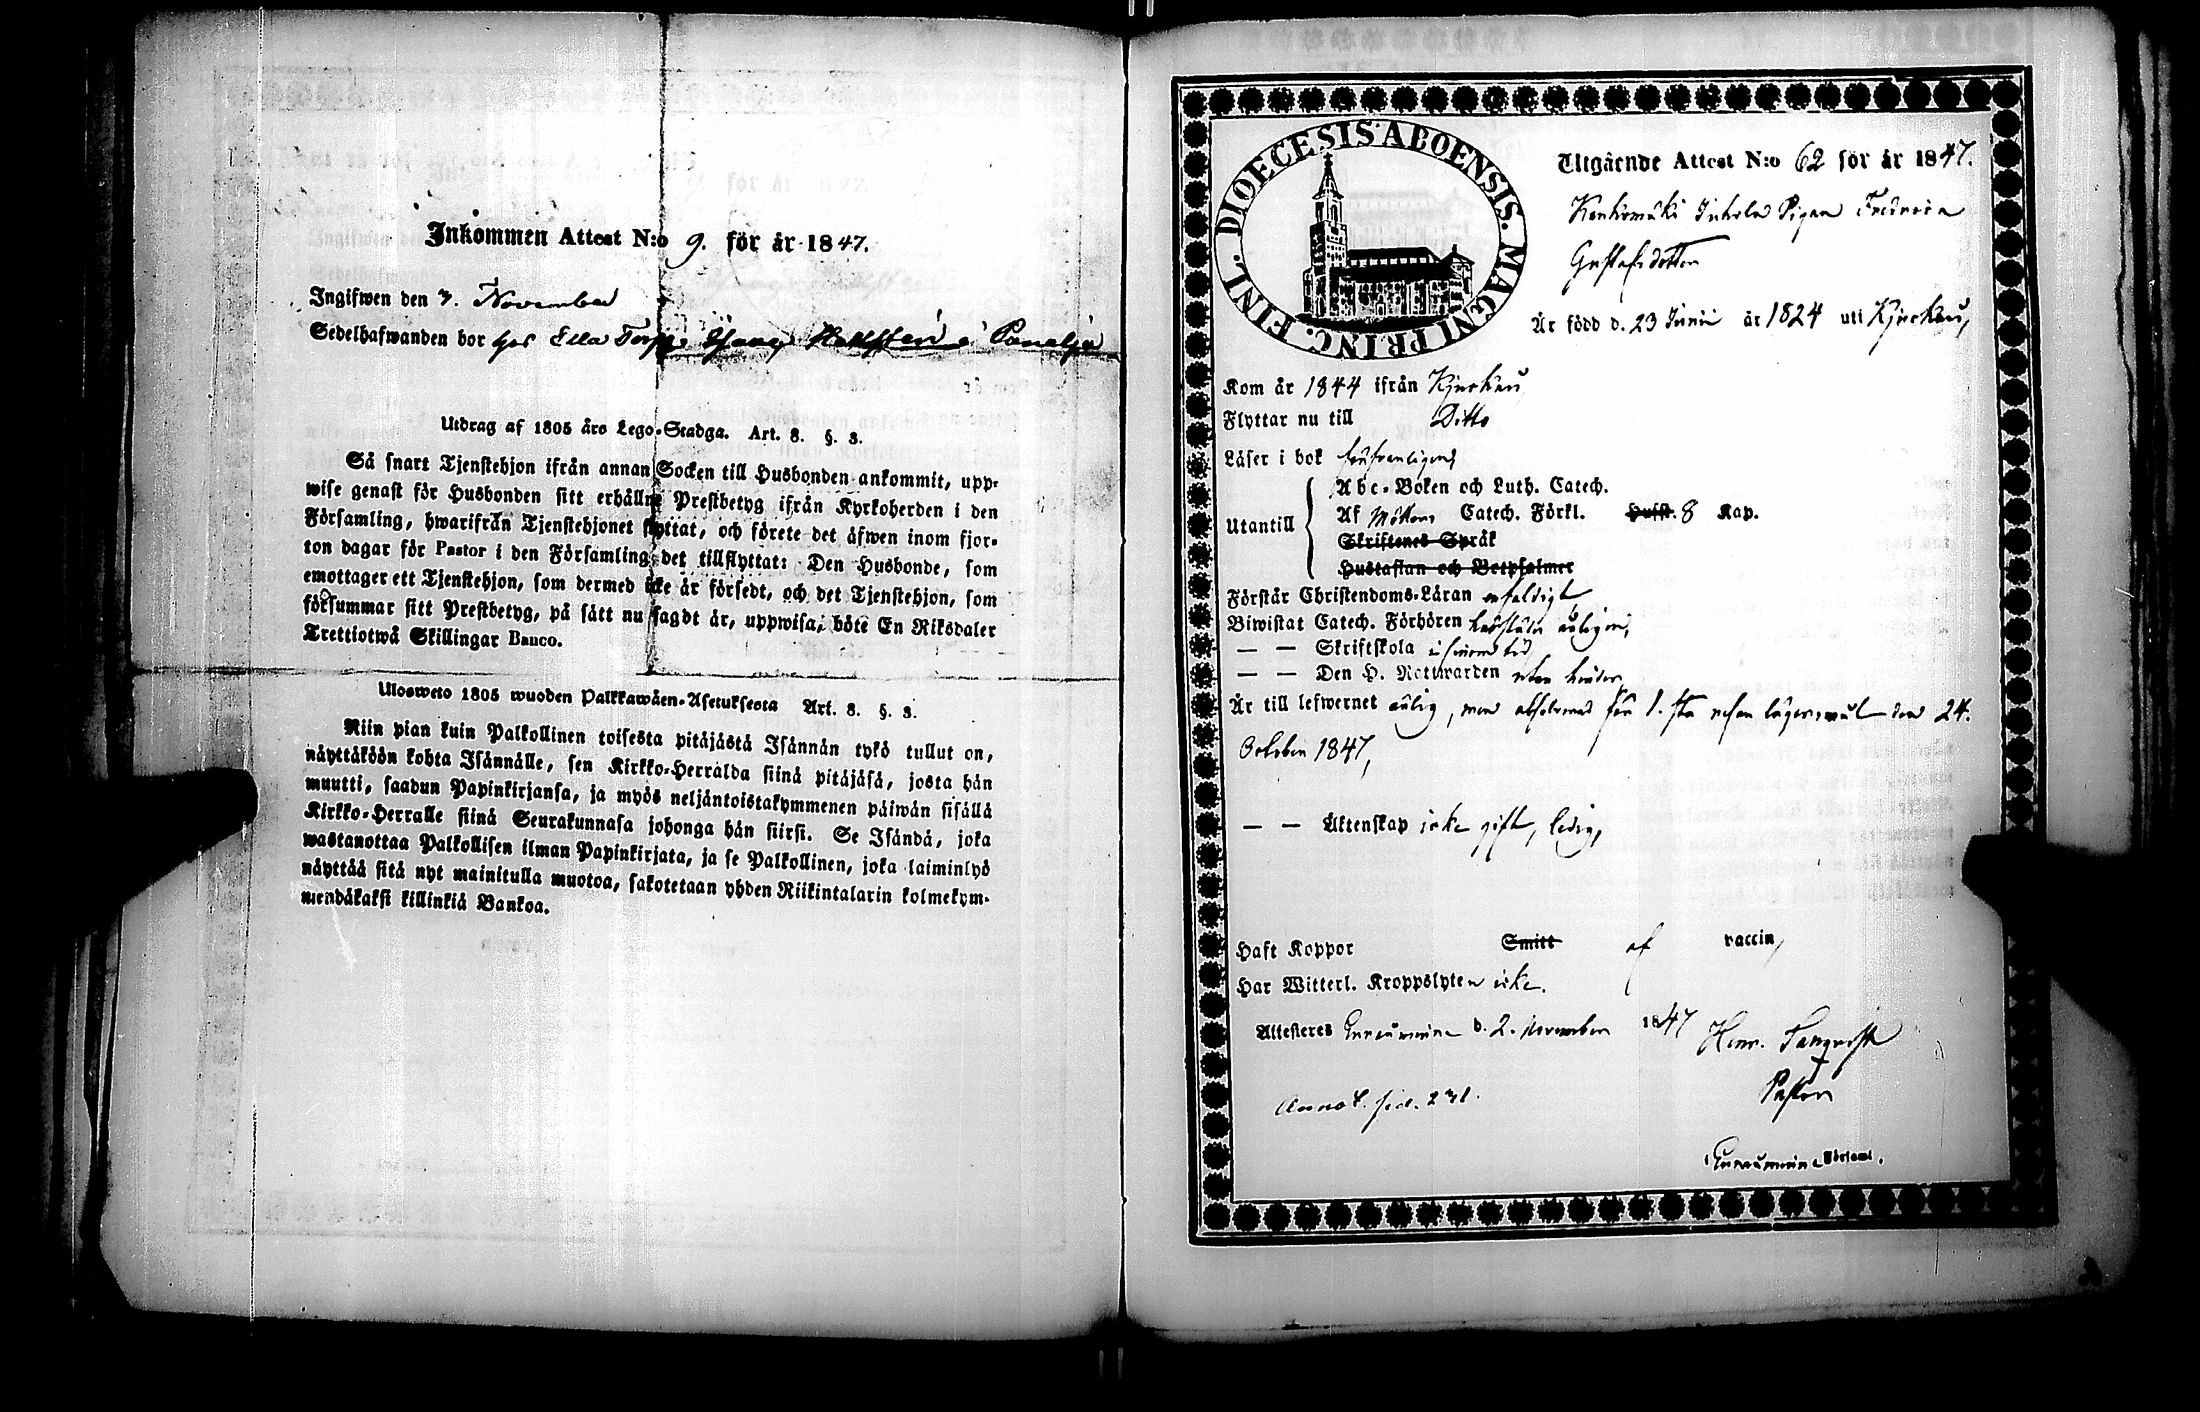 Inkommen Attest N:o 9. för år 1847.
Ingifwen den 3. November
Sedelhafwanden bor hos Ella Torp i Panelia
Utdrag af 1805 års Lego-Stadga. Art. 8. §. 3.
Så snart Tjenstehjon ifrån annan Socken till Husbonden ankommit, upp-
wise genast för Husbonden sitt erhållne Prestbetyg ifrån Kyrkoherden i den
Församling, hwarifrån Tjenstehjonet flyttat, och förete det äfwen inom fjor-
ton dagar för Pastor i den Församling det tillflyttat: Den Husbonde, som
emottager ett Tjenstehjon, som dermed icke är försedt, och det Tjenstehjon, som
försummar sitt Prestbetyg, på sätt nu sagdt är, uppwisa, böte En Riksdaler
Trettiotwå Skillingar Banco.
Ulosweto 1805 wuoden Palkkawäen-Asetuksesta Art. 8. §. 3.
Niin pian kuin Palkollinen toisesta pitäjästä Isännän tykö tullut on,
näyttäköön kohta Isännälle, sen Kirkko-Herralda siinä pitäjäsä, josta hän
muutti, saadun Papinkirjansa, ja myös neljäntoistakymmenen päiwän sisällä
Kirkko-Herralle siinä Seurakunnasa johonga hän siirsi. Se Isändä, joka
wastanottaa Palkollisen ilman Papinkirjata, ja se Palkollinen, joka laiminlyö
näyttää sitä nyt mainitulla muotoa, sakotetaan yhden Riikintalarin kolmekym-
mendäkaksi killinkiä Bankoa.
DIOECESIS ABOENSIS. MAGNI PRINC. FINL.
Utgående Attest N:o 62 för år 1847.
Pigan Fredrica
Gustafsdotter
Är född d. 23 Junii år 1824 uti Kjukais,
Kom år 1844 ifrån Kjukais
Flyttar nu till Ditto
Läser i bok
Abc-Boken och Luth. Catech.
Utantill Af Möllers Catech. Förkl. Hufst. 8 Kap.
Skriftenes Språk
Hustaflan och Botpsalmer
Förstår Christendoms-Läran enfaldigt
Biwistat Catech. Förhören årligen,
— — Skriftskola i sinom tid
— — Den H. Nattwarden utan hinder,
Är till lefwernet ärlig, men absolverad för 1:sta resan lägersmål den 24.
October 1847,
— — Äktenskap icke gift, ledig,
Haft Koppor Smitt af vaccin,
Har Witterl. Kroppslyten icke.
Attesteras Eurauminne d. 2. November 1847 Henr.
Pastor
Annot. sid. 231.
i Eurauminne Församl.